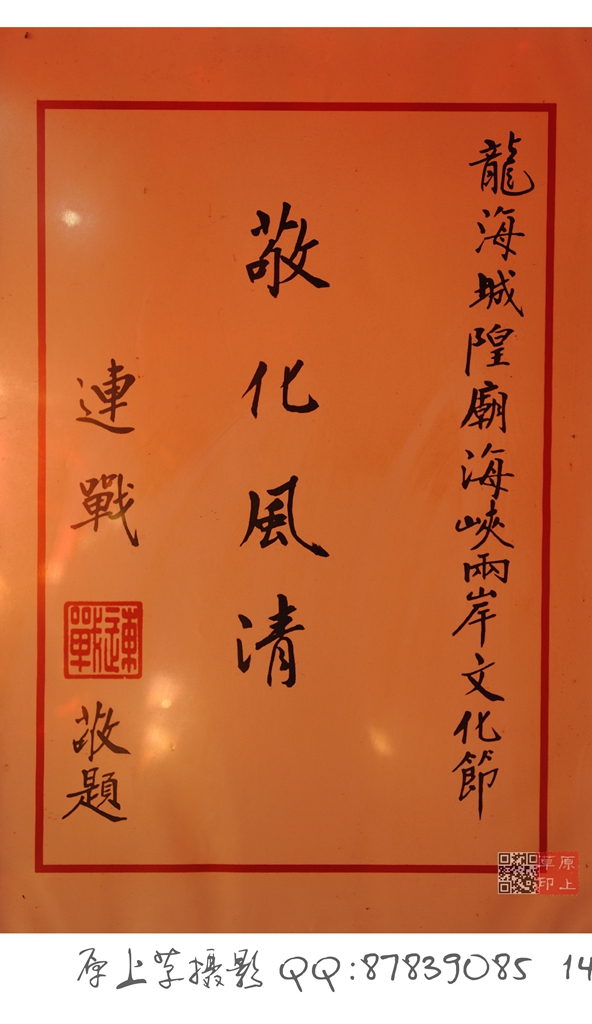 龍海城隍廟海峽兩岸文化節
敬化風清
連戰
連戰
敬題
原上草印
原上草攝影 QQ:87839085 14